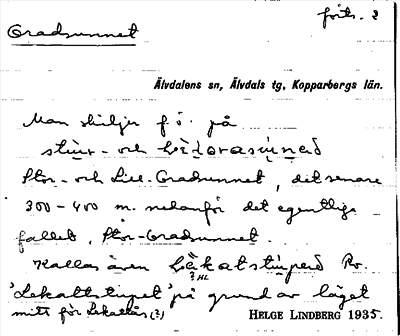 forts. 2
Gradsunnet
Älvdalens sn, Älvdals tg, Kopparbergs län.
Man skiljer f. ö. på
stuur- och
Stor- och Lill-Gradsunnet, det senare
300-400 m. nedanför det egentliga
fallet, Stor-Gradsunnet.
Kallas även
HL
'Lekattstupet' på grund av läget
mitt för Lekattås (?)
HELGE LINDBERG 1935.